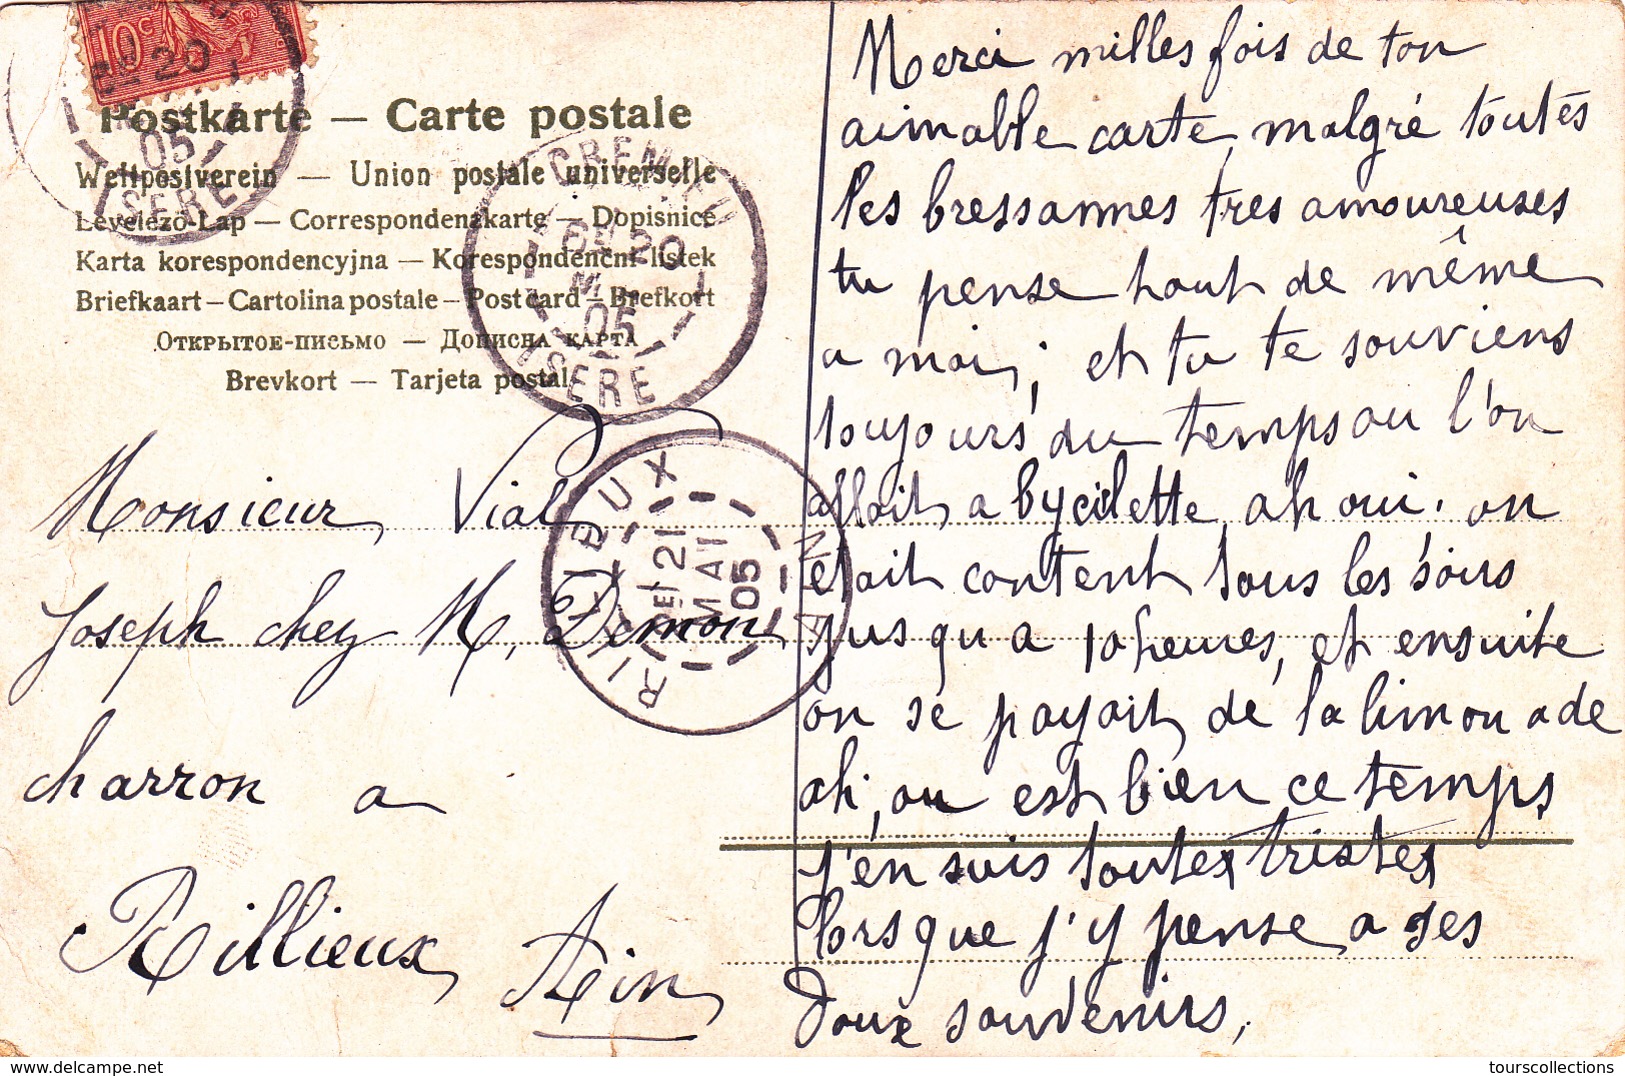 10c
Postkarte — Carte postale
Weltpostverein — Union postale universelle
Levelezö-Lap — Correspondenzkarte — Dopisnice
Karta korespondencyjna — Korespondenční listek
Briefkaart — Cartolina postale — Post card — Brefkort
Открытое-письмо — Дописна карта
Brevkort — Tarjeta postal
20
05
ISERE
CREMIEU
20
MAI
05
ISERE
RILLIEUX
21
MAI
05
AIN
Monsieur Vial
Joseph chez M, Demon
charron a
Rillieux
Ain
Merci milles fois de ton
aimable carte, malgré toutes
les bressannes tres amoureuses
tu pense tout de même
a moi, et tu te souviens
toujours du temps ou l'on
allait a bycilette, ah oui. on
etait content tous les soirs
jusqu a 10 heures, et ensuite
on se payait de la limonade
ah, ou est bien ce temps
j'en suis toutes tristes
lorsque j'y pense a ses
doux souvenirs,
www.delcampe.net
tourscollections